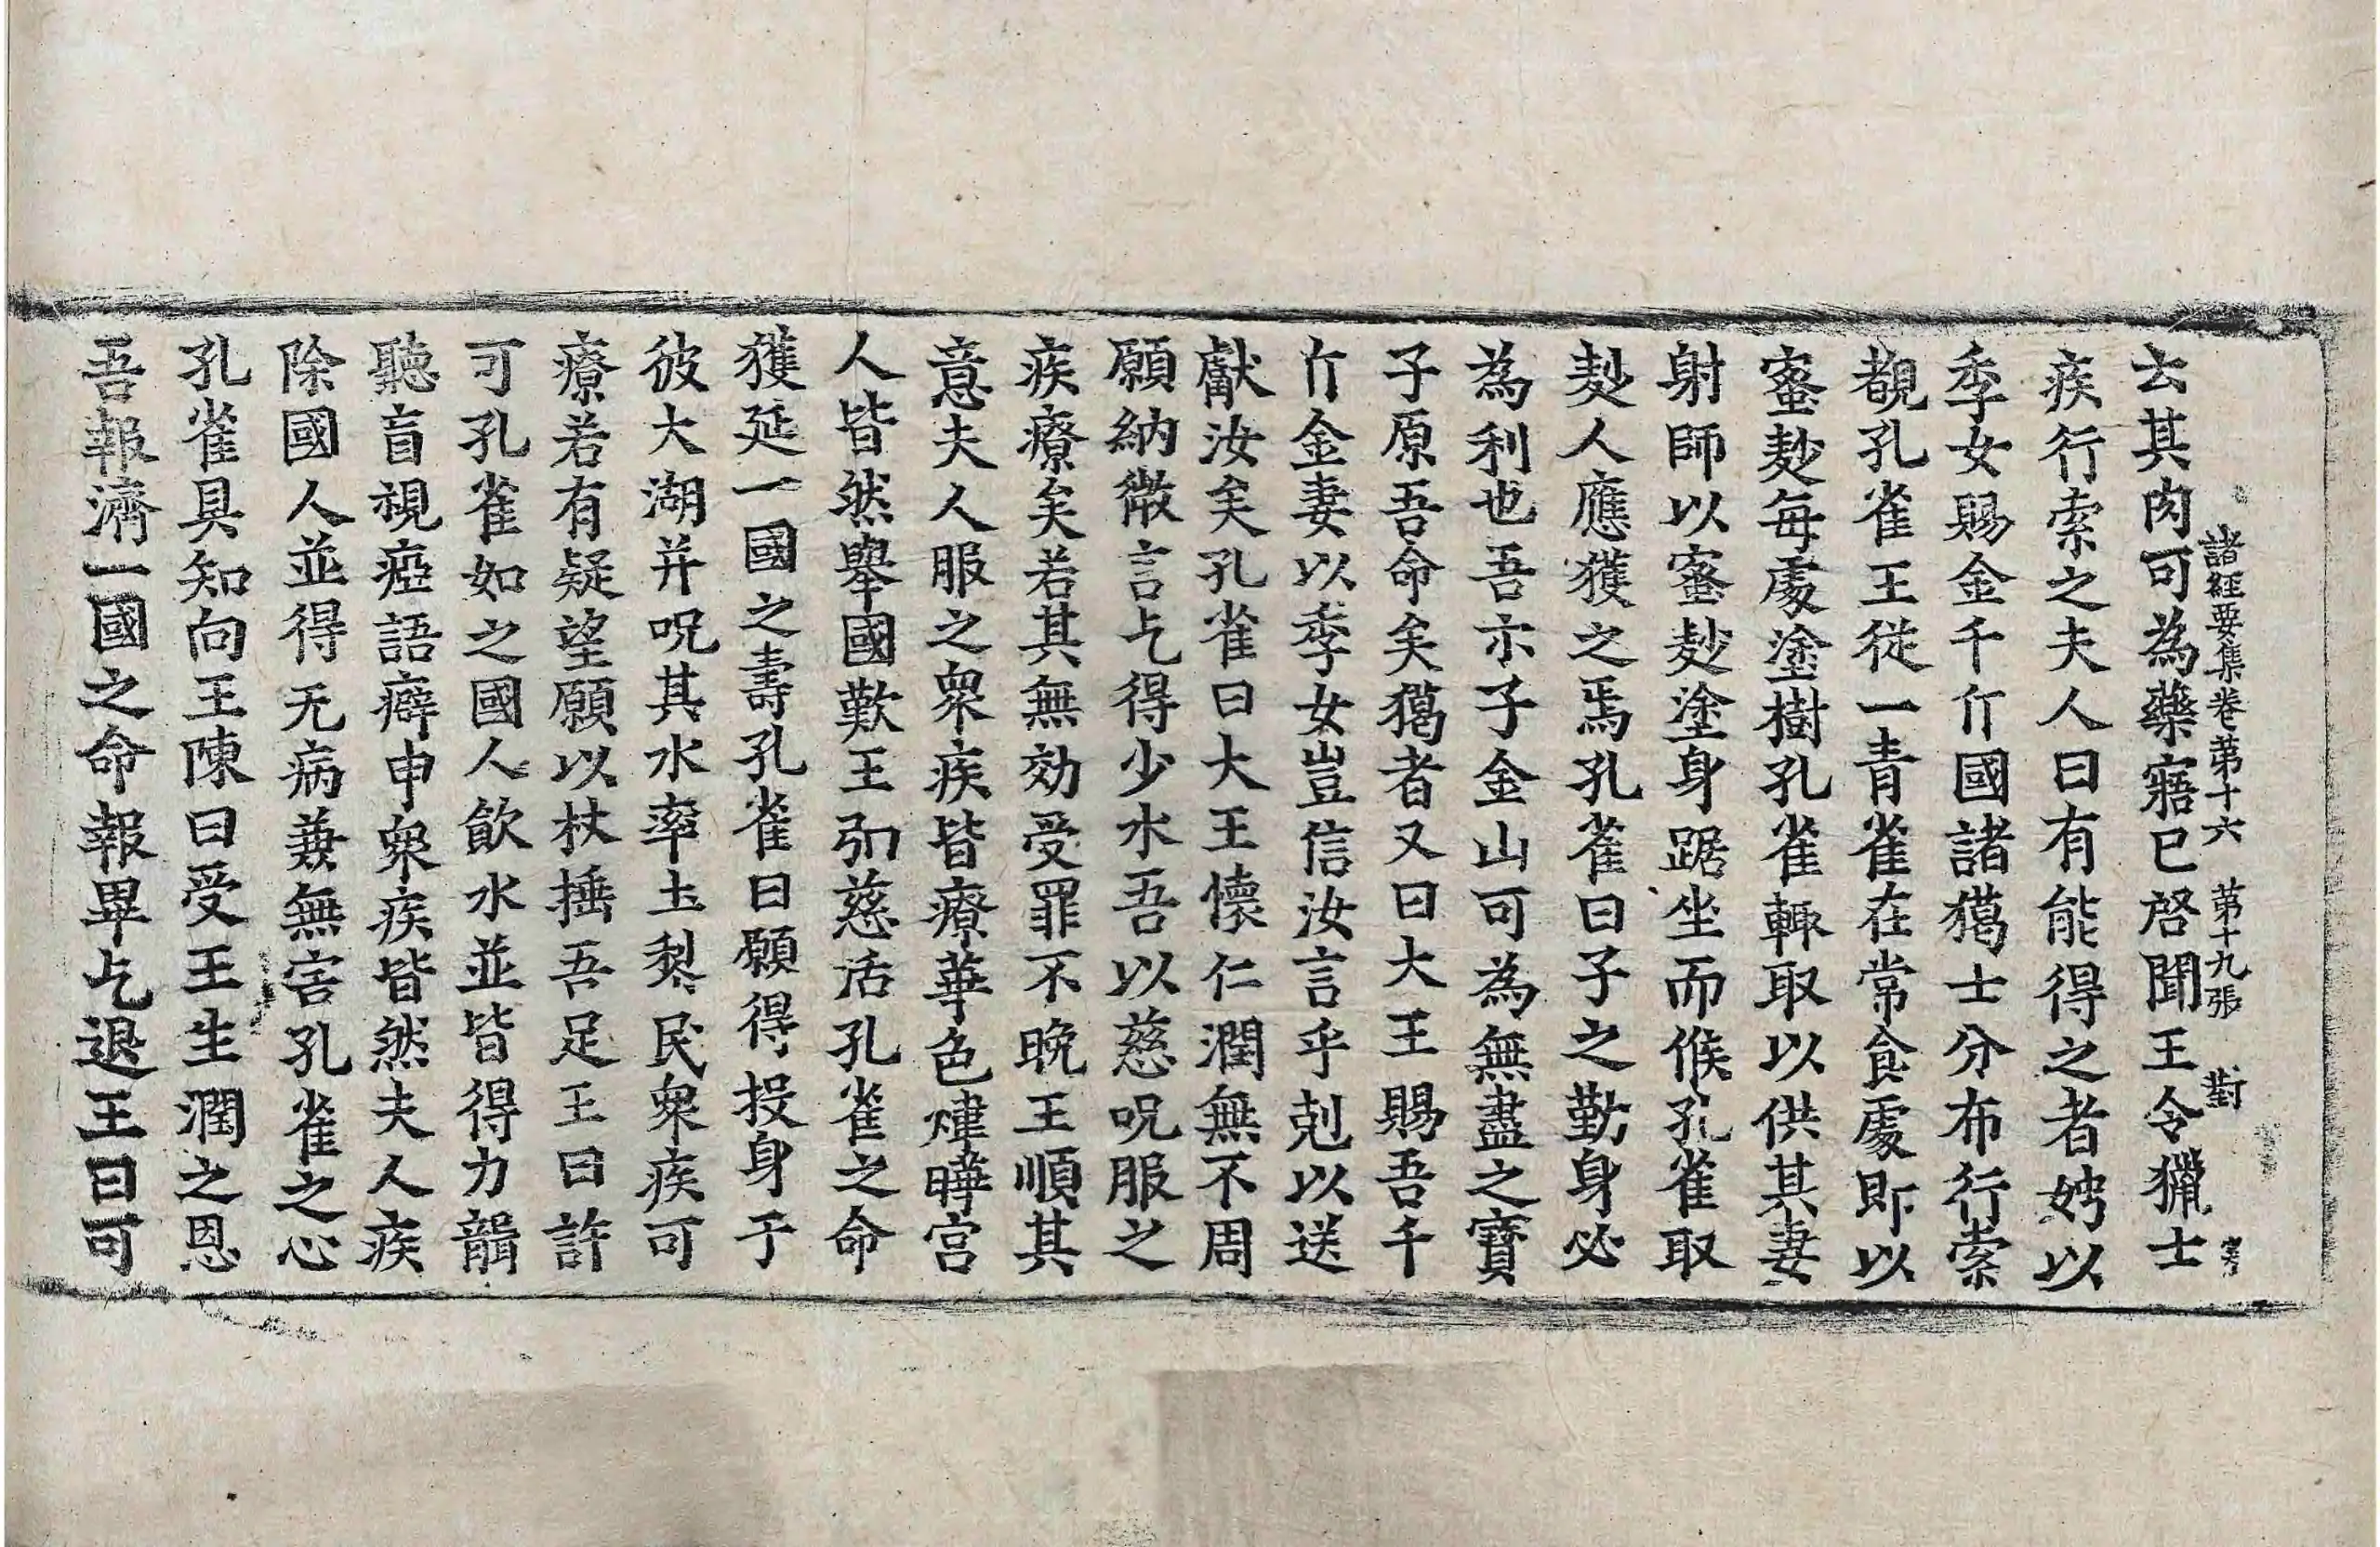 諸經要集卷苐十六 苐十九張 對
云其肉可為藥寤已啓聞王令獵士
疾行索之夫人曰有能得之者娉以
季女賜金千斤國諸獦士分布行索
覩孔雀王從一青雀在常食處即以
蜜麨每處塗樹孔雀輙取以供其妻
射師以蜜麨塗身踞坐而候孔雀取
麨人應獲之焉孔雀曰子之勤身必
為利也吾示子金山可為無盡之寶
子原吾命矣獦者又曰大王賜吾千
斤金妻以季女豈信汝言乎剋以送
獻汝矣孔雀曰大王懷仁潤無不周
願納微言乞得少水吾以慈呪服之
疾療矣若其無効受罪不晚王順其
意夫人服之衆疾皆療華色煒曄宮
人皆然舉國歎王弘慈活孔雀之命
獲延一國之壽孔雀曰願得投身于
彼大湖并呪其水率土黎民衆疾可
療若有疑望願以杖捶吾足王曰許
可孔雀如之國人飲水並皆得力聾
聽盲視瘂語癖申衆疾皆然夫人疾
除國人並得无病兼無害孔雀之心
孔雀具知向王陳曰受王生潤之恩
吾報濟一國之命報畢乞退王曰可